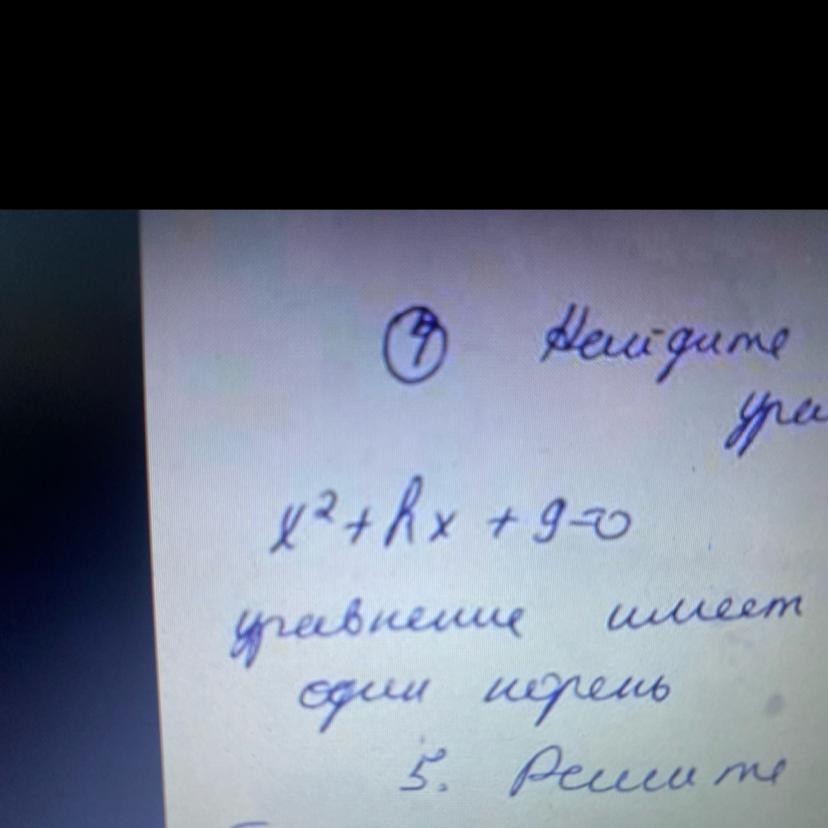 ④ Найдите
ура
x² + hx + 9 = 0
уравнение имеет
один корень
5. Решите